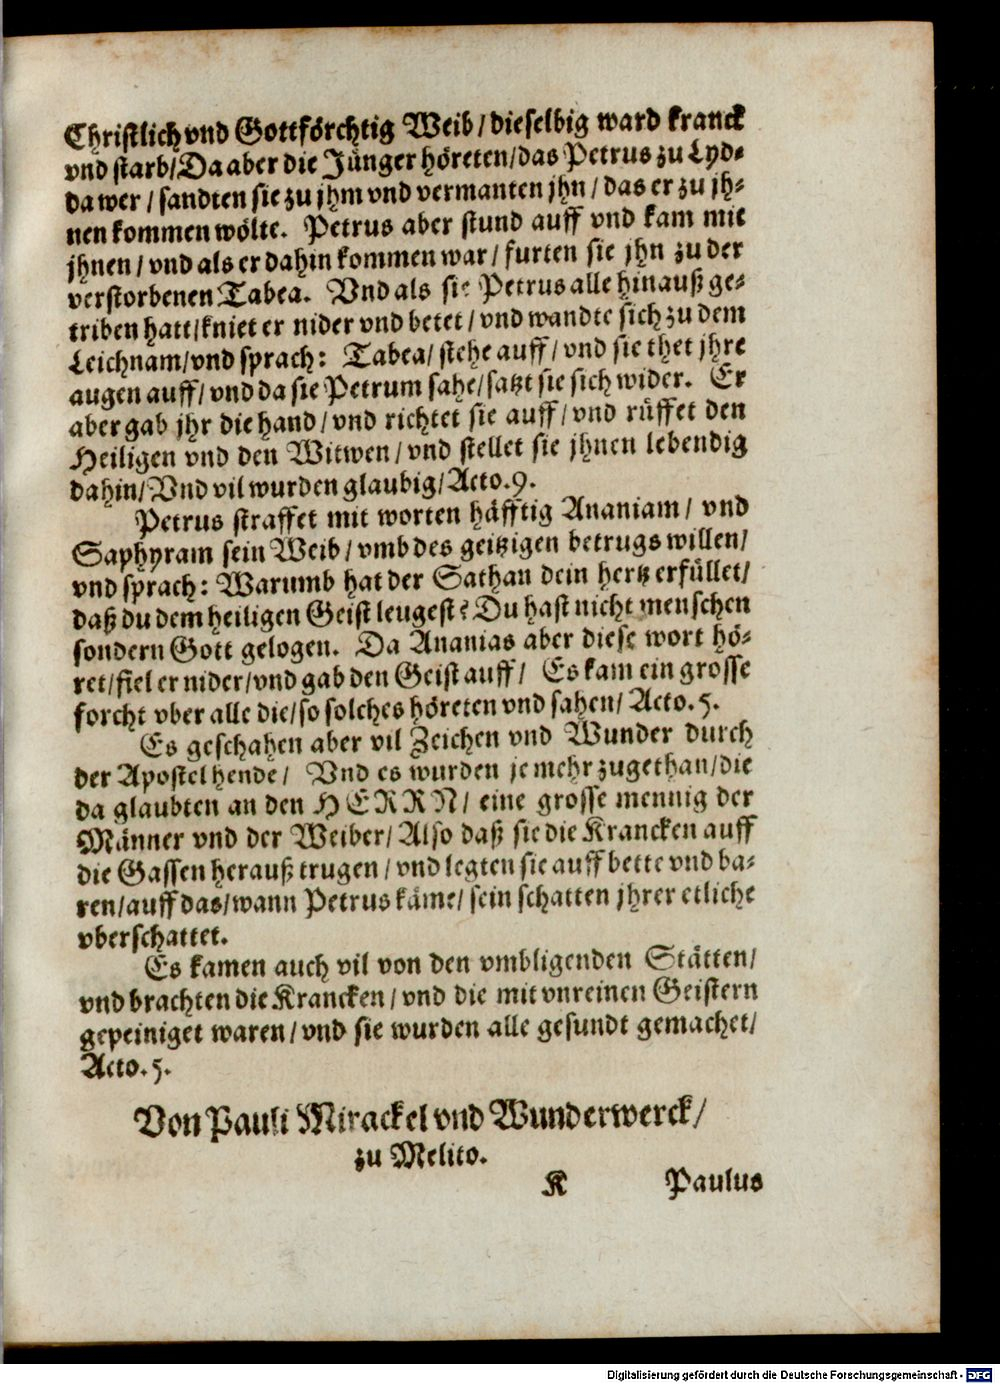 Christlich vnd Gottförchtig Weib / dieselbig ward kranck
vnd starb / Da aber die Jünger höreten / das Petrus zu Lyd-
da wer / sandten sie zu jhm vnd vermanten jhn / das er zu jh-
nen kommen wölte. Petrus aber stund auff vnd kam mit
jhnen / vnd als er dahin kommen war / furten sie jhn zu der
verstorbenen Tabea. Vnd als sie Petrus alle hinauß ge-
triben hatt / kniet er nider vnd betet / vnd wandte sich zu dem
Leichnam / vnd sprach: Tabea / stehe auff / vnd sie thet jhre
augen auff / vnd da sie Petrum sahe / satzt sie sich wider. Er
aber gab jhr die hand / vnd richtet sie auff / vnd rüffet den
Heiligen vnd den Witwen / vnd stellet sie jhnen lebendig
dahin / Vnd vil wurden glaubig / Acto. 9.
Petrus straffet mit worten häfftig Ananiam / vnd
Saphyram sein Weib / vmb des geitzigen betrugs willen /
vnd sprach: Warumb hat der Sathan dein hertz erfüllet /
daß du dem heiligen Geist leugest? Du hast nicht menschen
sondern Gott gelogen. Da Ananias aber diese wort hö-
ret / fiel er nider / vnd gab den Geist auff / Es kam ein grosse
forcht vber alle die / so solches höreten vnd sahen / Acto. 5.
Es geschahen aber vil Zeichen vnd Wunder durch
der Apostel hende / Vnd es wurden je mehr zugethan / die
da glaubten an den HERRN / eine grosse mennig der
Männer vnd der Weiber / Also daß sie die Krancken auff
die Gassen herauß trugen / vnd legten sie auff bette vnd ba-
ren / auff das / wann Petrus käme / sein schatten jhrer etliche
vberschattet.
Es kamen auch vil von den vmbligenden Stätten /
vnd brachten die Krancken / vnd die mit vnreinen Geistern
gepeiniget waren / vnd sie wurden alle gesundt gemachet /
Acto. 5.
Von Pauli Mirackel vnd Wunderwerck /
zu Melito.
K Paulus
Digitalisierung gefördert durch die Deutsche Forschungsgemeinschaft - DFG